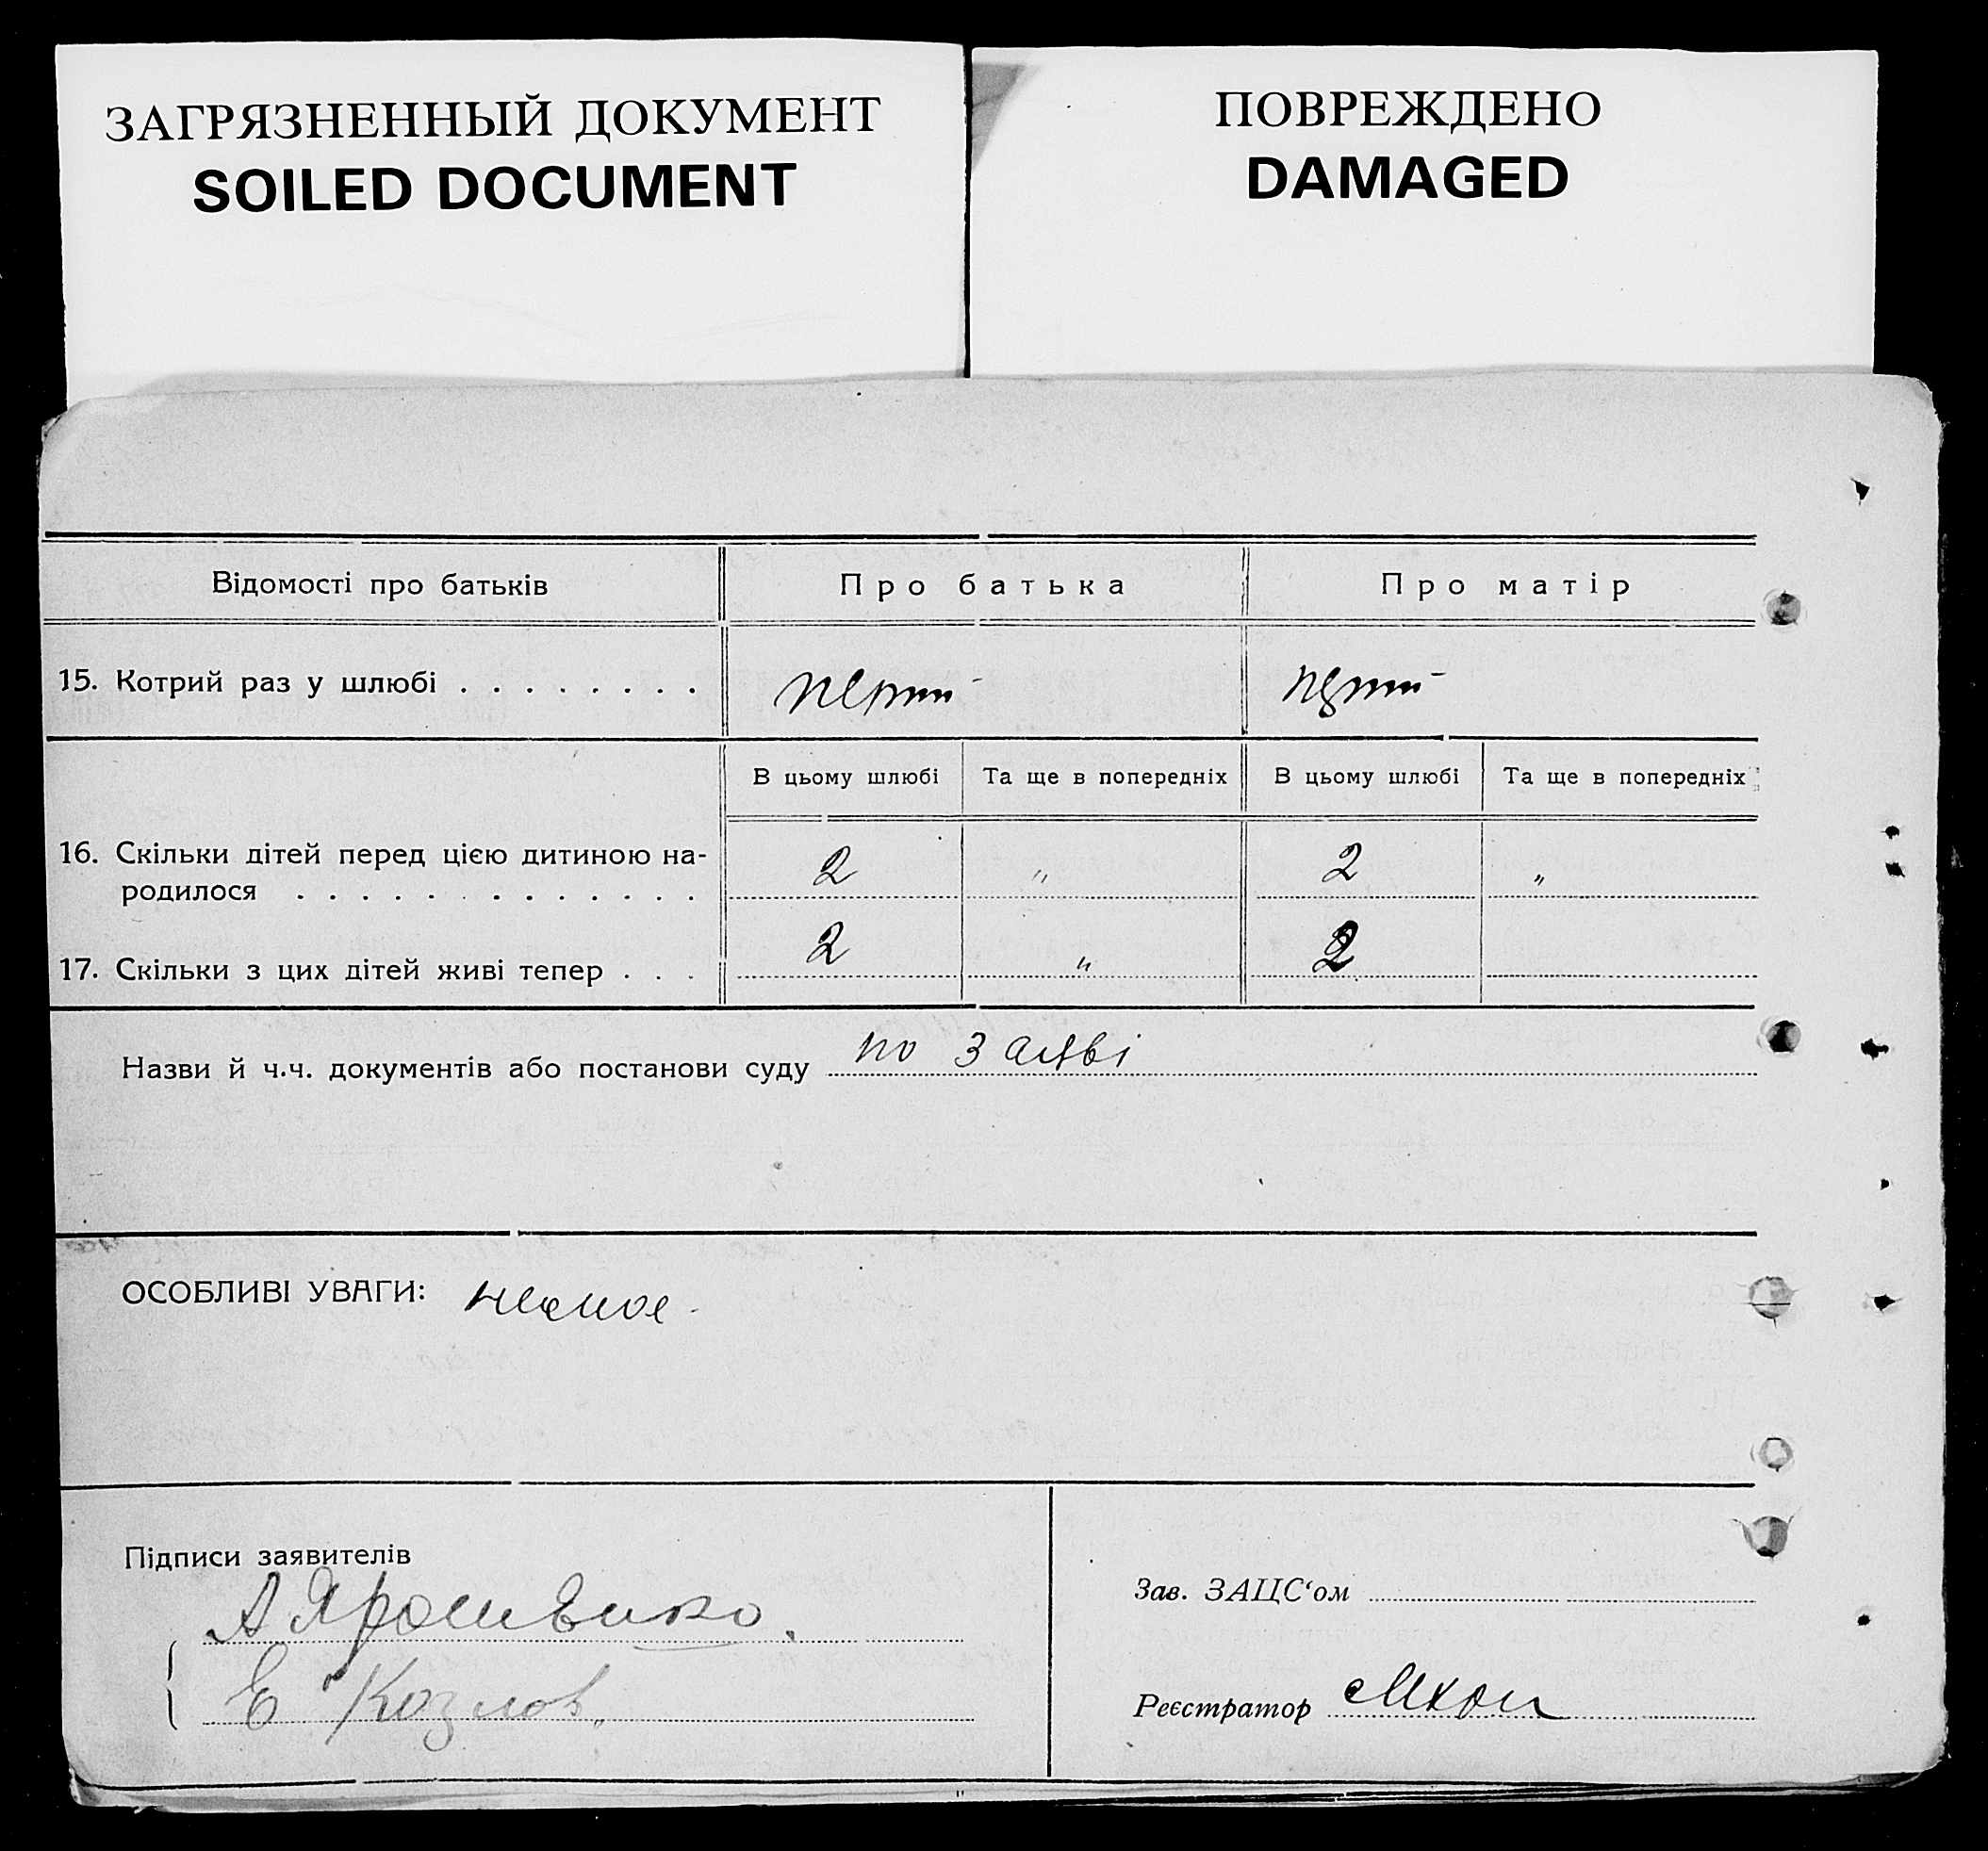 ЗАГРЯЗНЕННЫЙ ДОКУМЕНТ
SOILED DOCUMENT
ПОВРЕЖДЕНО
DAMAGED
Відомості про батьків Про батька Про матір
15. Котрий раз у шлюбі . . . . . . . . перший перший
В цьому шлюбі Та ще в попередніх В цьому шлюбі Та ще в попередніх
16. Скільки дітей перед цією дитиною на-
родилося . . . . . . . . . . . . . 2 " 2 "
17. Скільки з цих дітей живі тепер . . . 2 " 2
Назви й ч.ч. документів або постанови суду по заяві
ОСОБЛИВІ УВАГИ: немає
Підписи заявителів
А Ярошенко.
Е Козлов.
Зав. ЗАЦС‘ом
Реєстратор